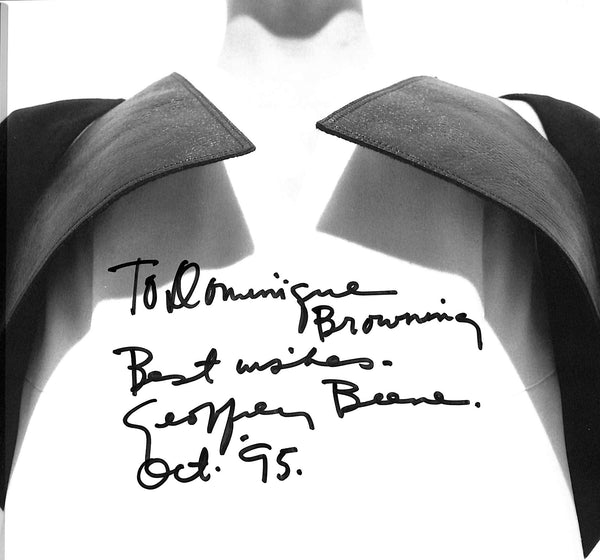 To Dominique
Browning
Best wishes.
Geoffrey Beene.
Oct. 95.